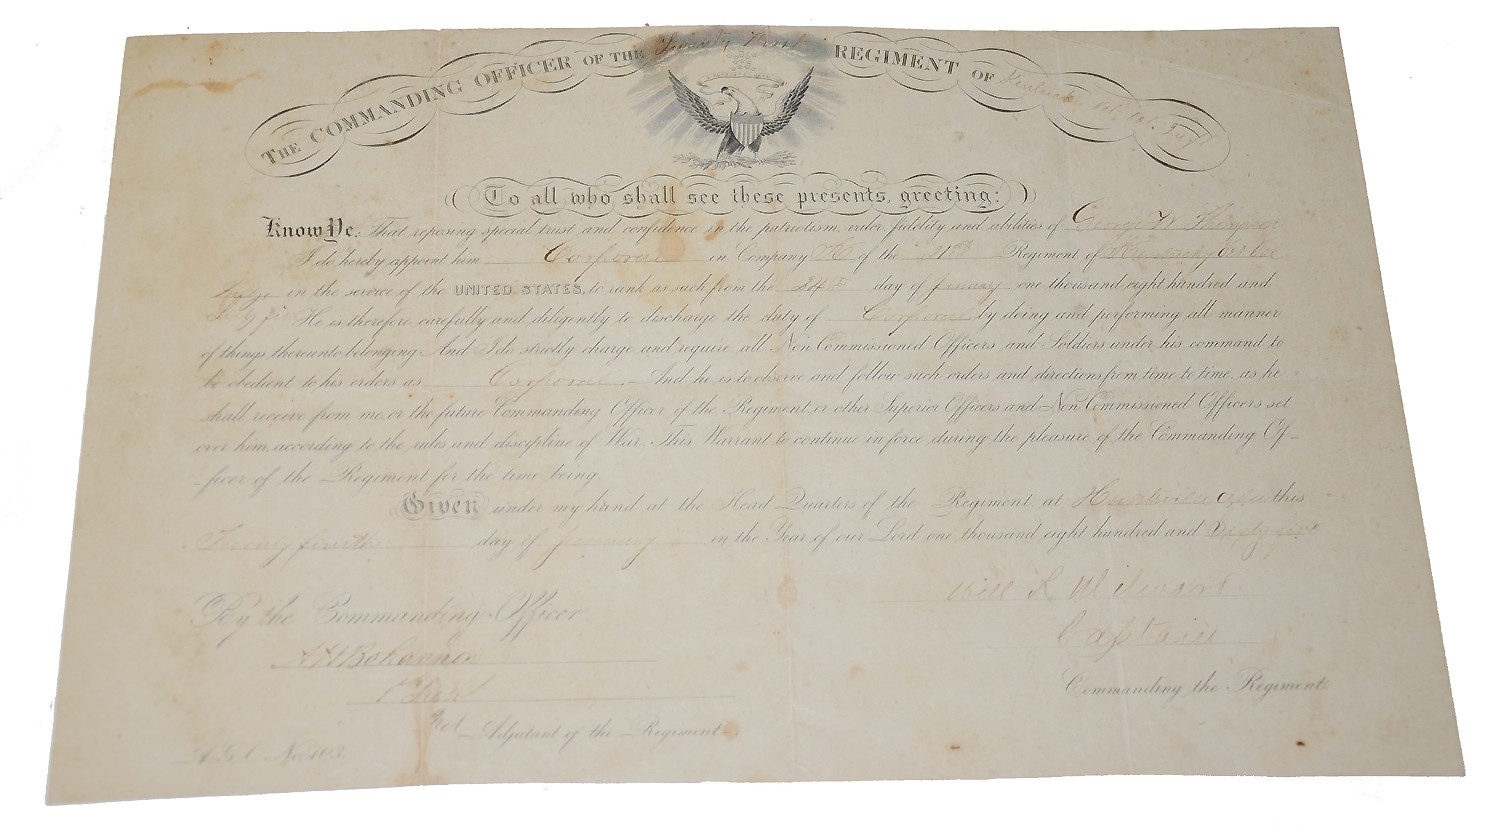 THE COMMANDING OFFICER OF THE Twenty First REGIMENT OF Kentucky Vet. Vol. Inft
To all who shall see these presents, greeting:
Know Ye, That reposing special trust and confidence in the patriotism, valor, fidelity and abilities of George W Thompson
I do hereby appoint him Corporal in Company K of the 21st Regiment of Kentucky Vet Vol
in the service of the UNITED STATES, to rank as such from the 24th day of January one thousand eight hundred and
Sixty five He is therefore carefully and diligently to discharge the duty of Corporal by doing and performing all manner
of things thereunto belonging. And I do strictly charge and require all Non Commissioned Officers and Soldiers under his command, to
be obedient to his orders as Corporal. And he is to observe and follow such orders, and directions from time to time, as he
shall receive from me, or the future Commanding Officer of the Regiment, or other Superior Officers and Non Commissioned Officers set
over him, according to the rules and discipline of War. This Warrant to continue in force during the pleasure of the Commanding Of-
-ficer of the Regiment for the time being.
Given under my hand at the Head Quarters of the Regiment, at Huntsville Ala this
Twenty fourth day of January in the Year of our Lord one thousand eight hundred and Sixty five
Will
Captain
Commanding the Regiment.
By the Commanding Officer
Bohannon
1st Lieut
Adjutant of the Regiment.
A.G.O. No. 103.